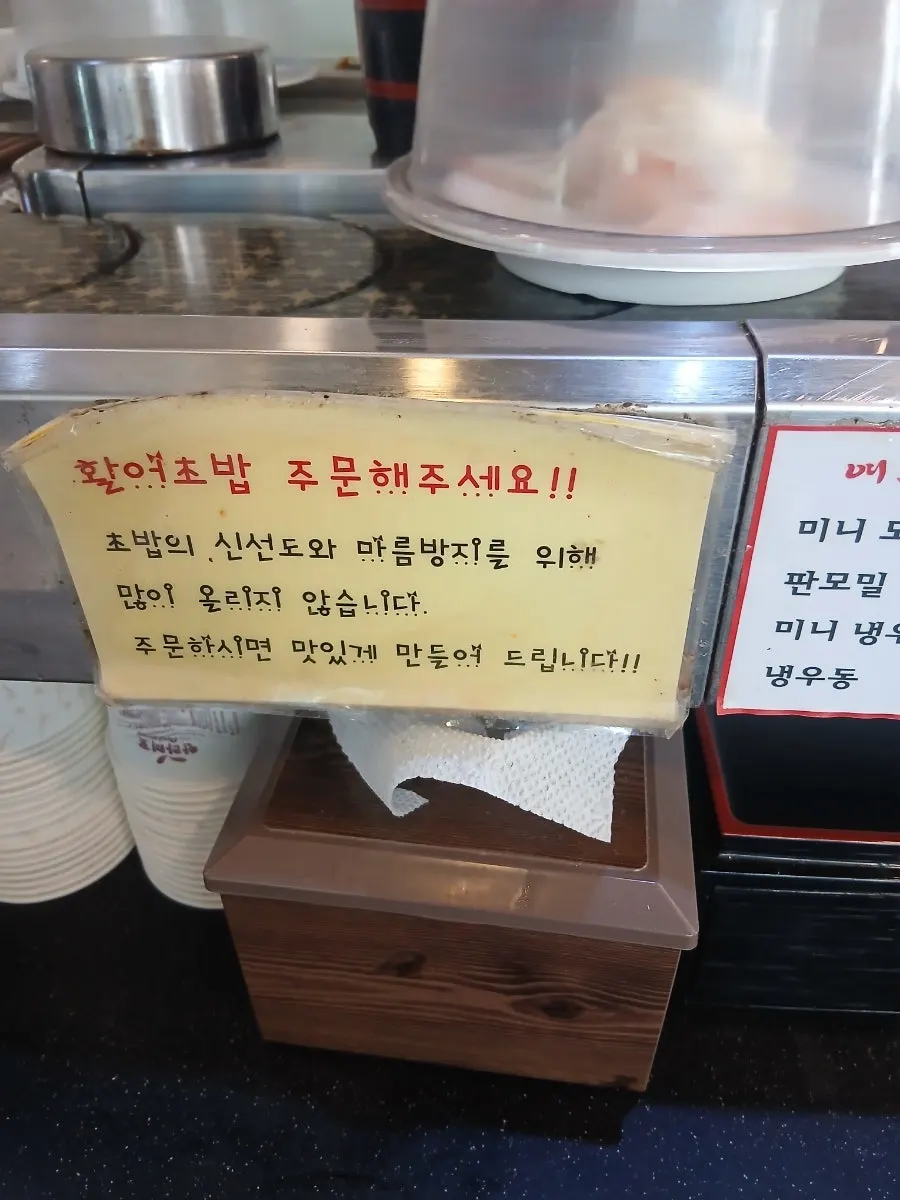 활어초밥 주문해주세요!!
초밥의 신선도와 마름방지를 위해
많이 올리지 않습니다.
주문하시면 맛있게 만들어 드립니다!!
미니
판모밀
미니
냉우동